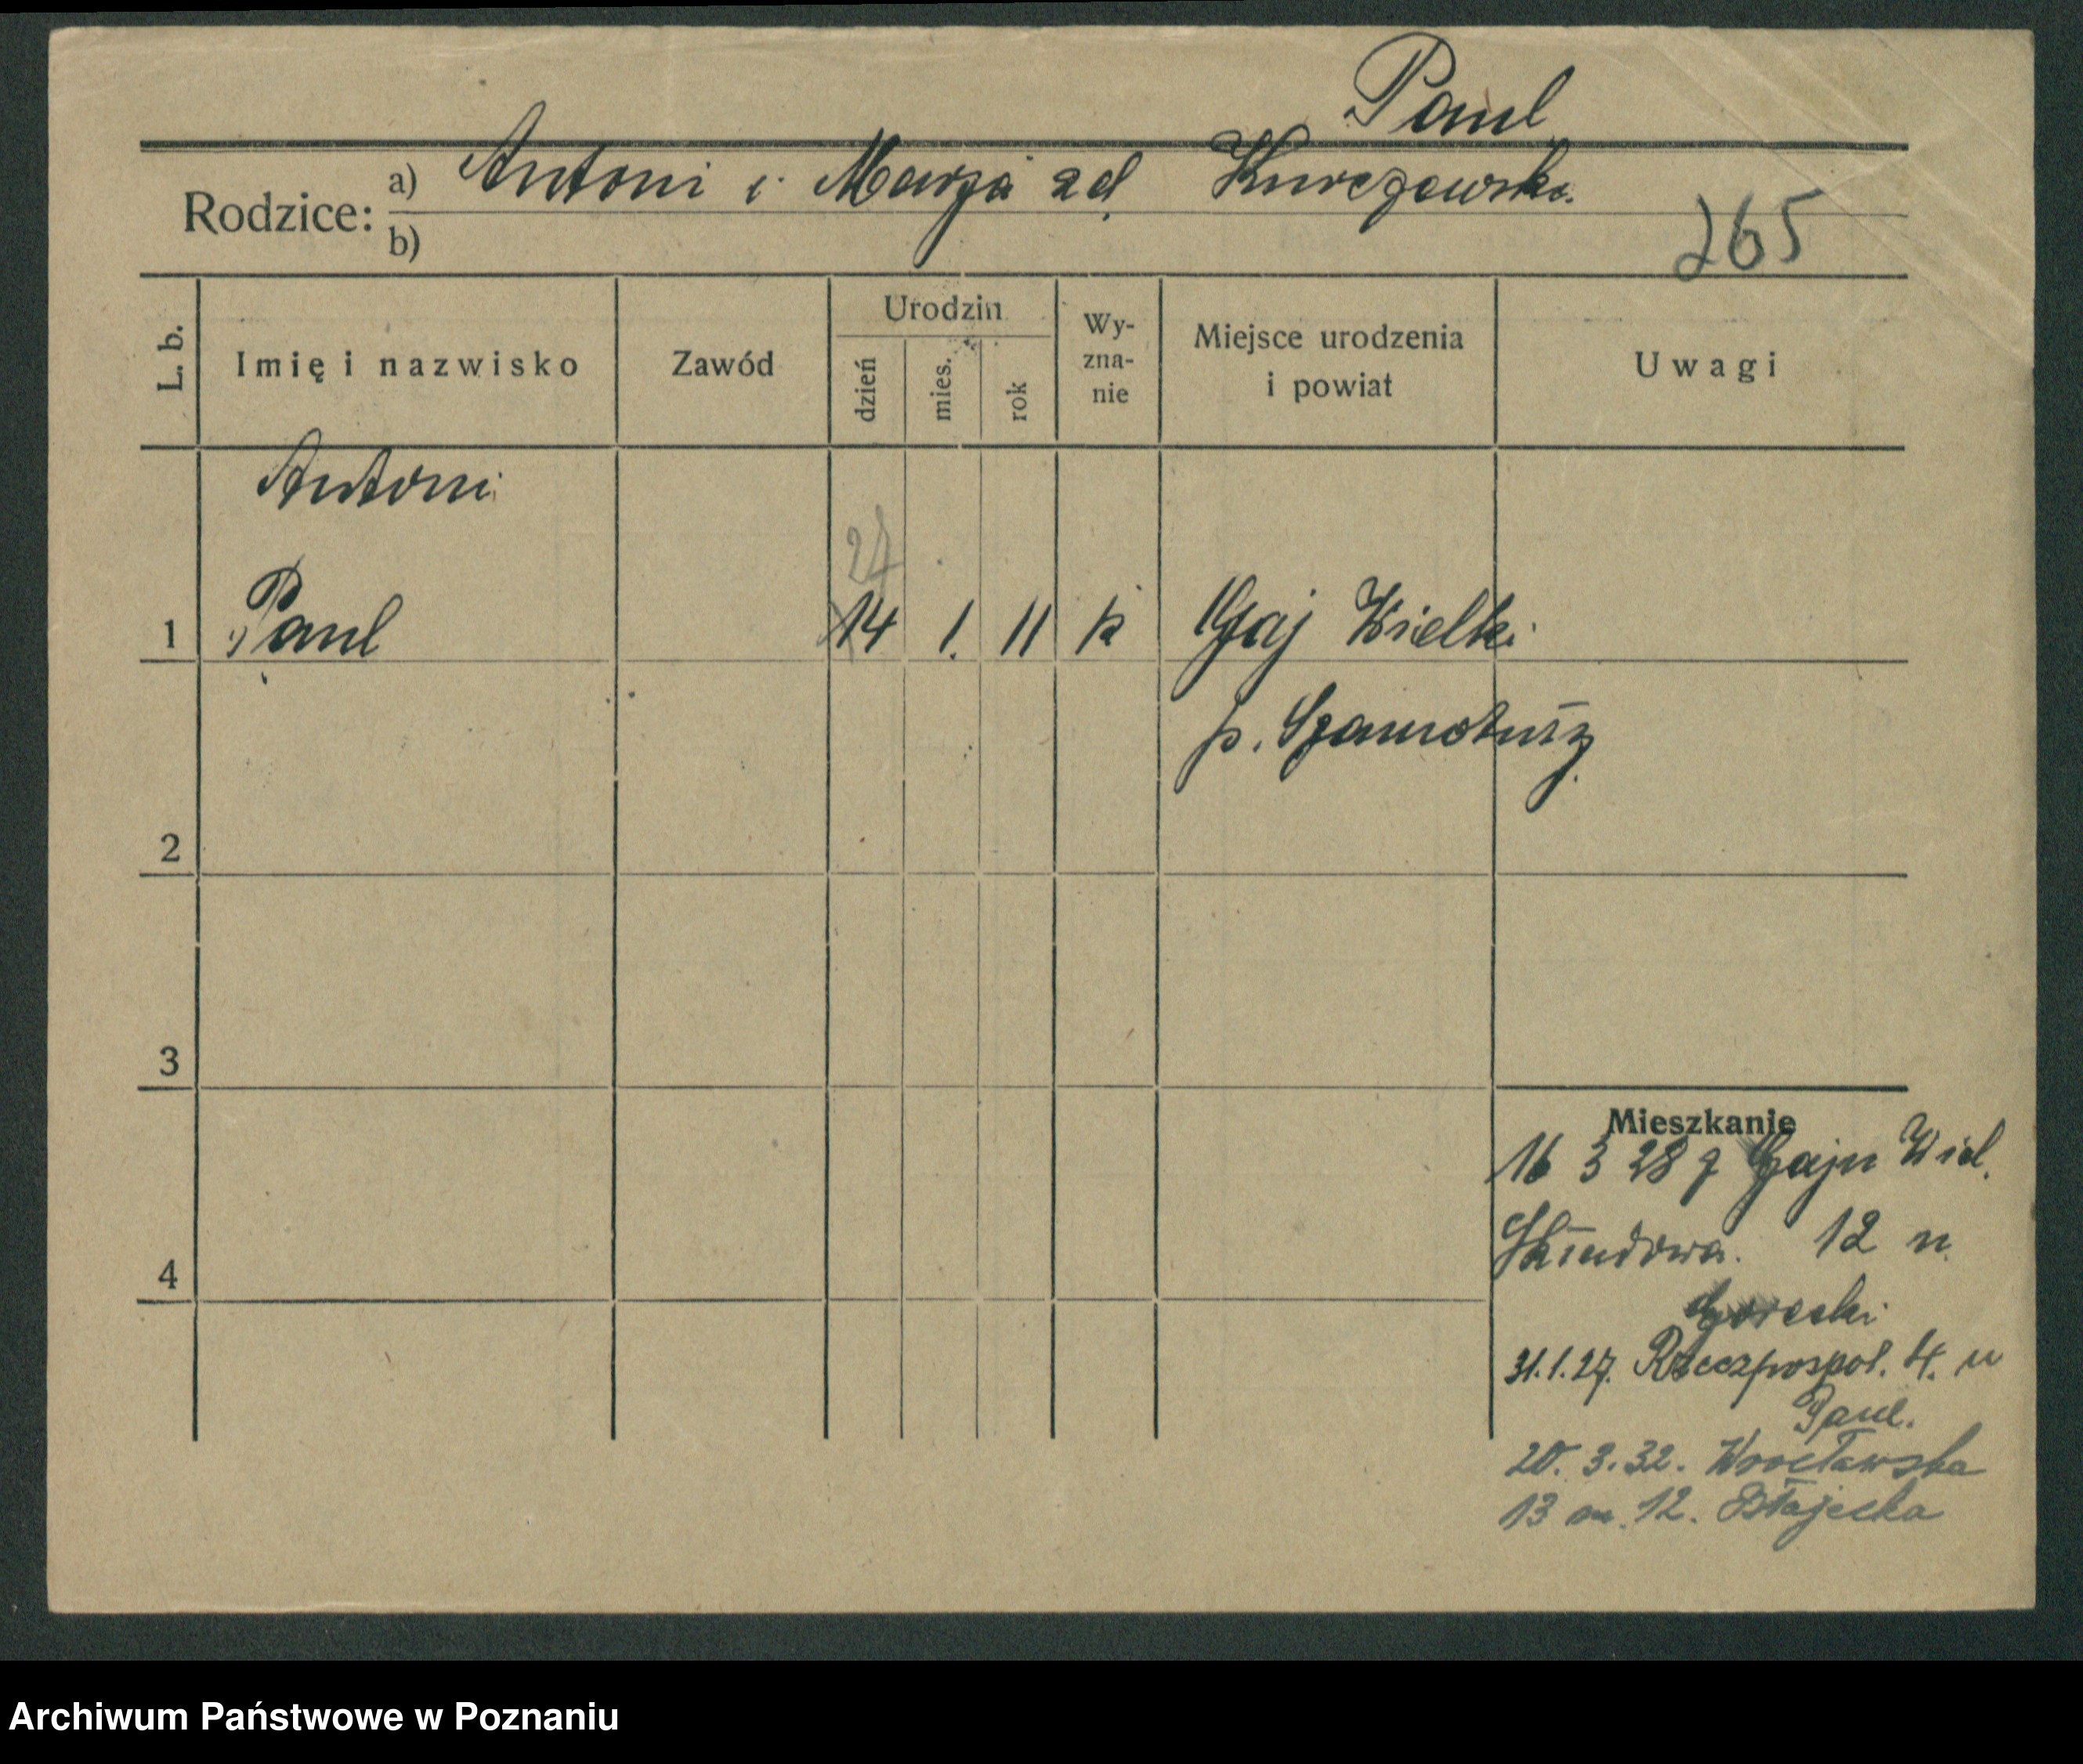 Paul
Rodzice: a) Antoni i Marja zd. Kurczewska
b)
265
L. b.
Imię i nazwisko
Zawód
Urodzin
dzień
mies.
rok
Wy-
zna-
nie
Miejsce urodzenia
i powiat
Uwagi
Antoni
27
1 Paul 14 1. 11 k Gaj Wielki
p. Szamotuły
2
3
4
Mieszkanie
16 3 28 z Gaju Wiel.
12 u
Gorecki
31.1.27. Rzeczpospol. 4. u
Paul.
20. 3. 32. Wrocławska
13 m. 12. Błajecka
Archiwum Państwowe w Poznaniu